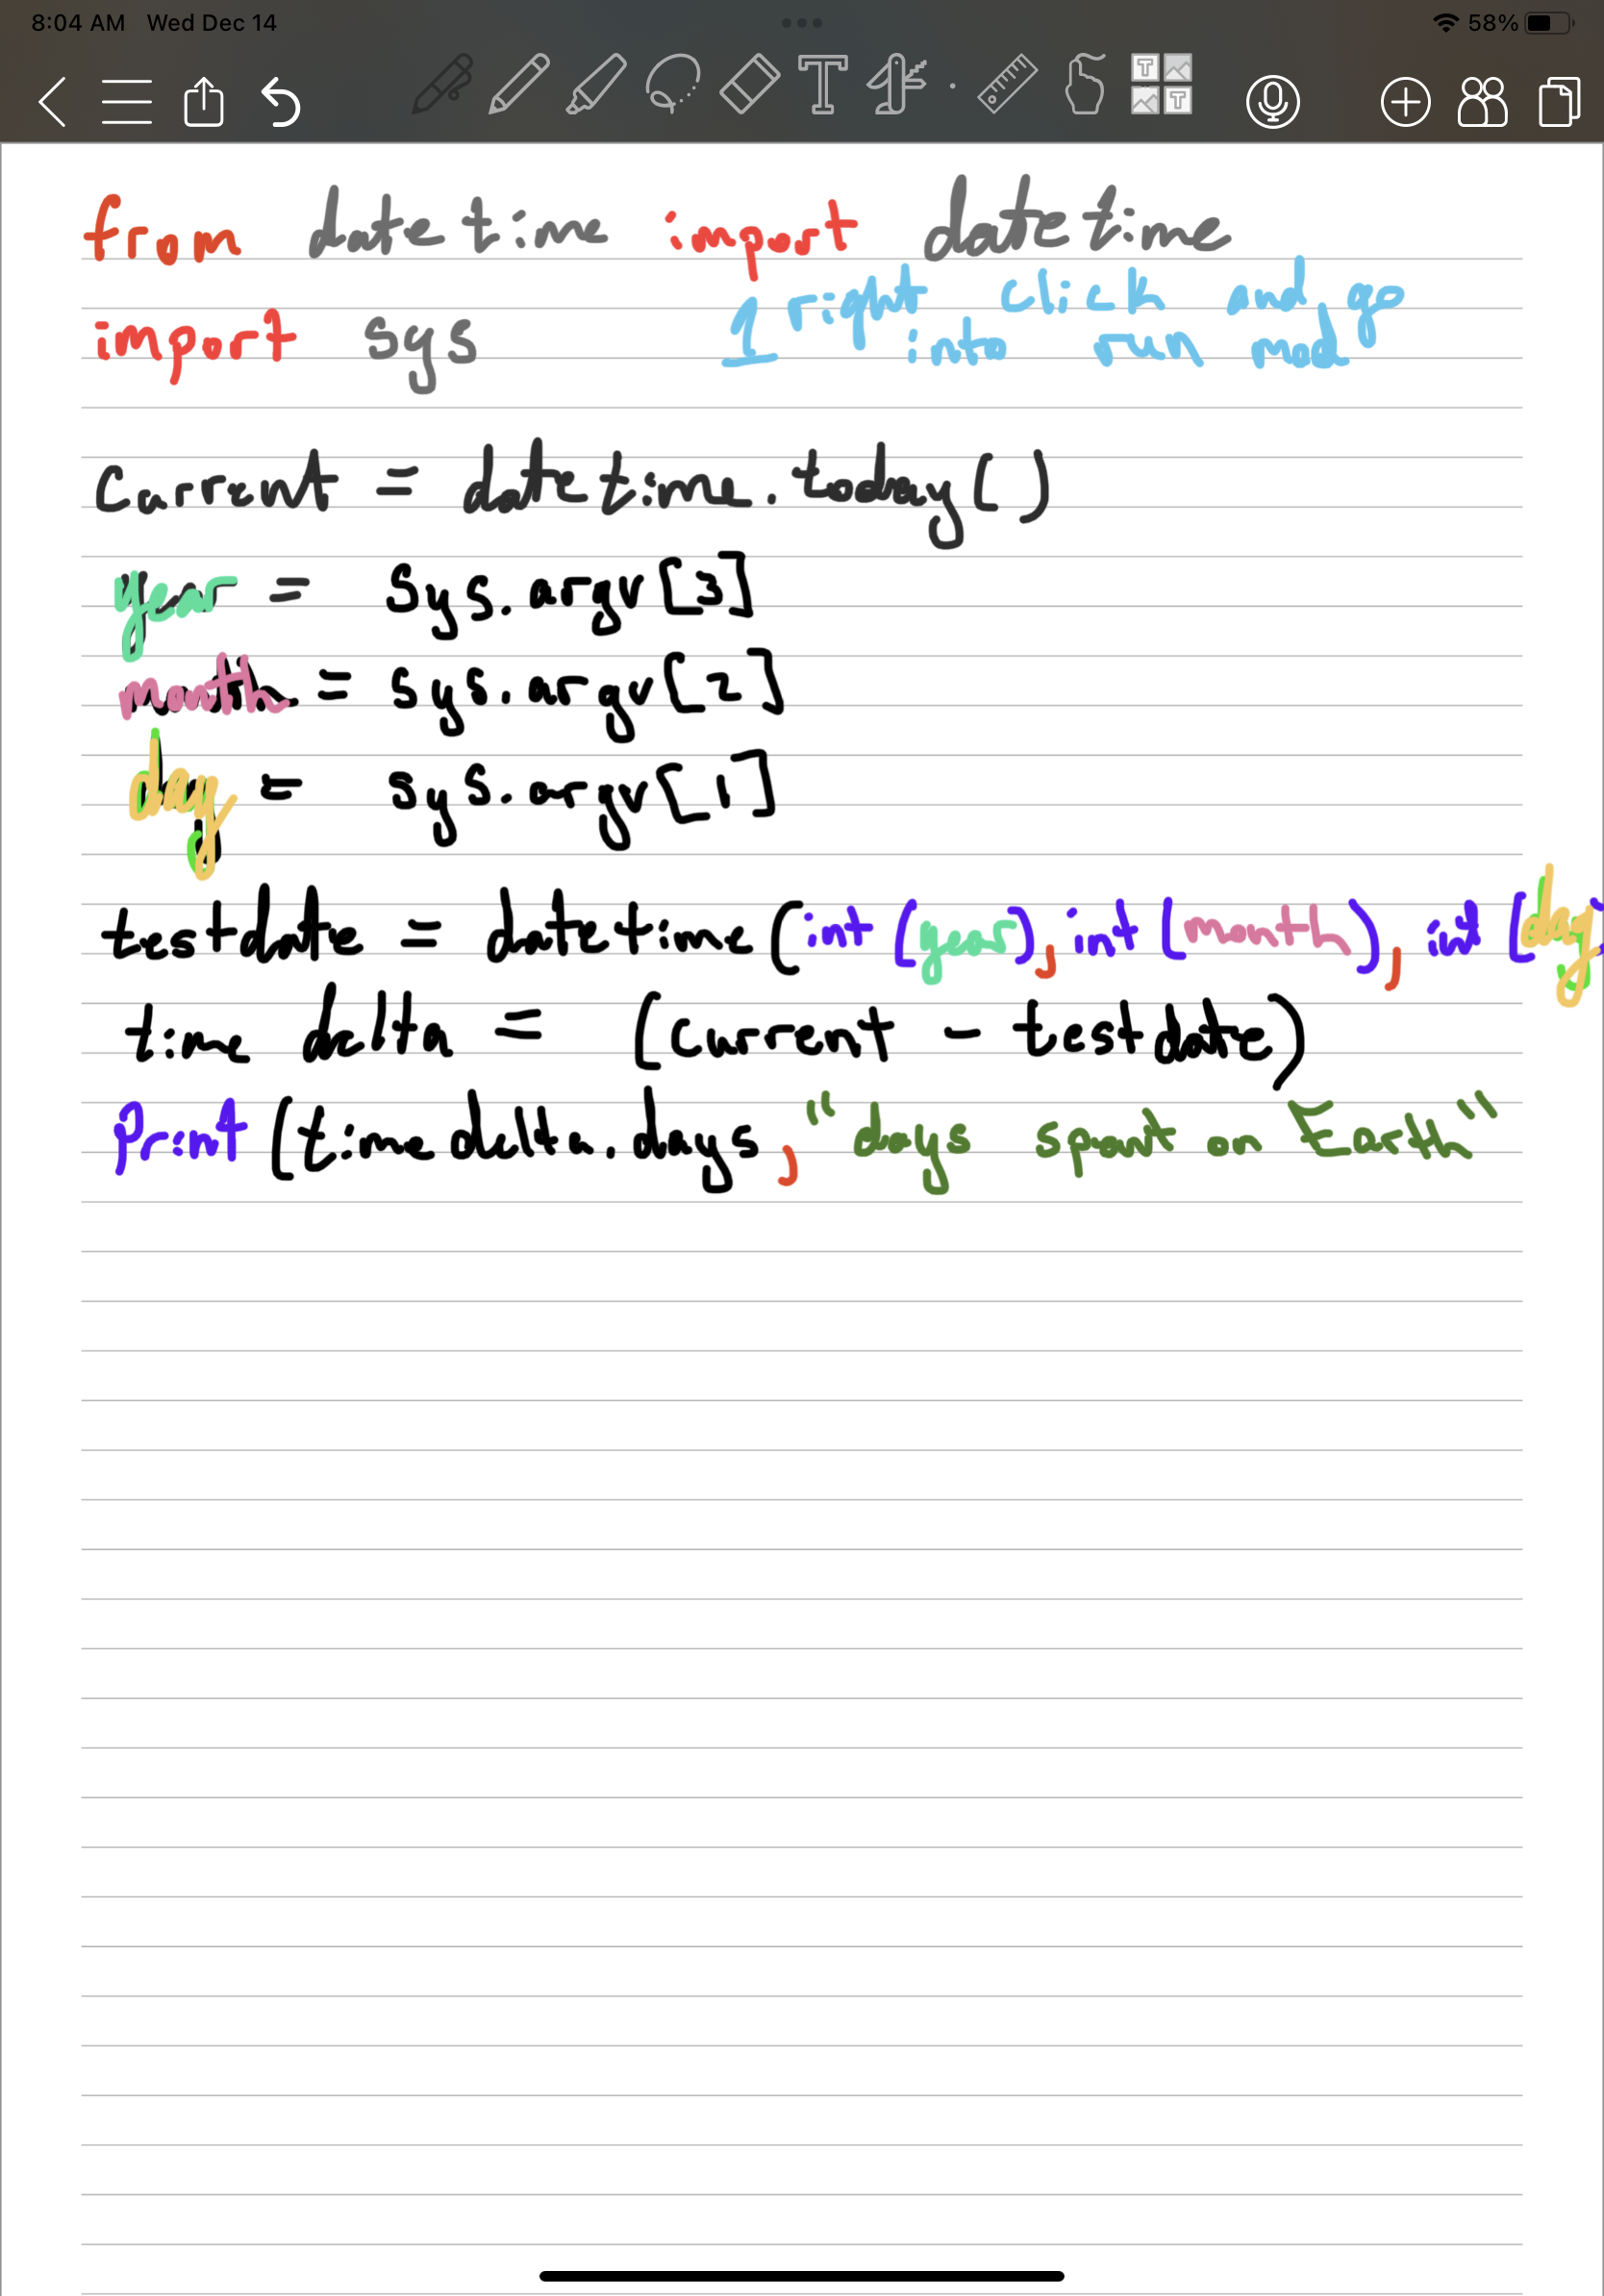 8:04 AM Wed Dec 14
58%
from datetime import datetime
1 right click and go
import sys
into run mod
current = datetime.today()
year = sys.argv[3]
month = sys.argv[2]
day = sys.argv[1]
testdate = datetime(int(year), int(month), int(day
time delta = (current - testdate)
Print (time delta.days, "days spent on Earth"